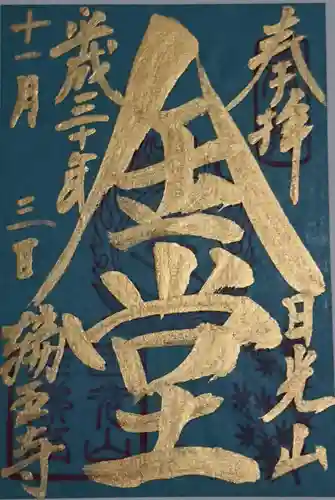 奉拝
日光山
金堂
平成三十年
十一月三日
輪王寺